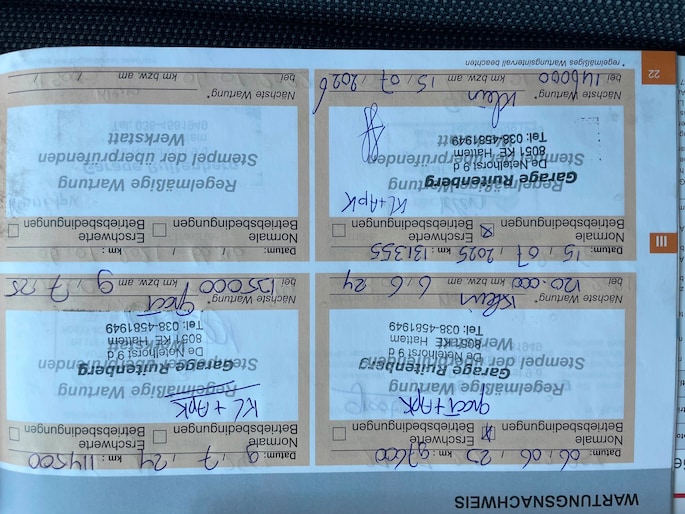 WARTUNGSNACHWEIS
Datum: 06 / 06 / 23 km: 97600
Normale Betriebsbedingungen
Erschwerte Betriebsbedingungen
groot + Apk
Regelmäßige Wartung
Stempel der überprüfenden
Werkstatt
Garage Ruitenberg
De Netelhorst 9 d
8051 KE Hattem
Tel: 038-4581949
Nächste Wartung* Klein
bei 120.000 km bzw. am 6 / 6 / 24
Datum: 9 / 7 / 24 km: 114500
Normale Betriebsbedingungen
Erschwerte Betriebsbedingungen
KL + Apk
Regelmäßige Wartung
Stempel der überprüfenden
Werkstatt
Garage Ruitenberg
De Netelhorst 9 d
8051 KE Hattem
Tel: 038-4581949
Nächste Wartung* groot
bei 125000 km bzw. am 9 / 7 / 25
III
Datum: 15 / 07 / 2025 km: 131355
Normale Betriebsbedingungen
Erschwerte Betriebsbedingungen
KL + Apk
Regelmäßige Wartung
Stempel der überprüfenden
Garage Ruitenberg
De Netelhorst 9 d
8051 KE Hattem
Tel: 038-4581949
Werkstatt
Nächste Wartung* Klein
bei 146000 km bzw. am 15 / 07 / 2026
Datum: / / km:
Normale Betriebsbedingungen
Erschwerte Betriebsbedingungen
Regelmäßige Wartung
Stempel der überprüfenden
Werkstatt
Nächste Wartung*
bei km bzw. am / /
22
*regelmäßiges Wartungsintervall beachten